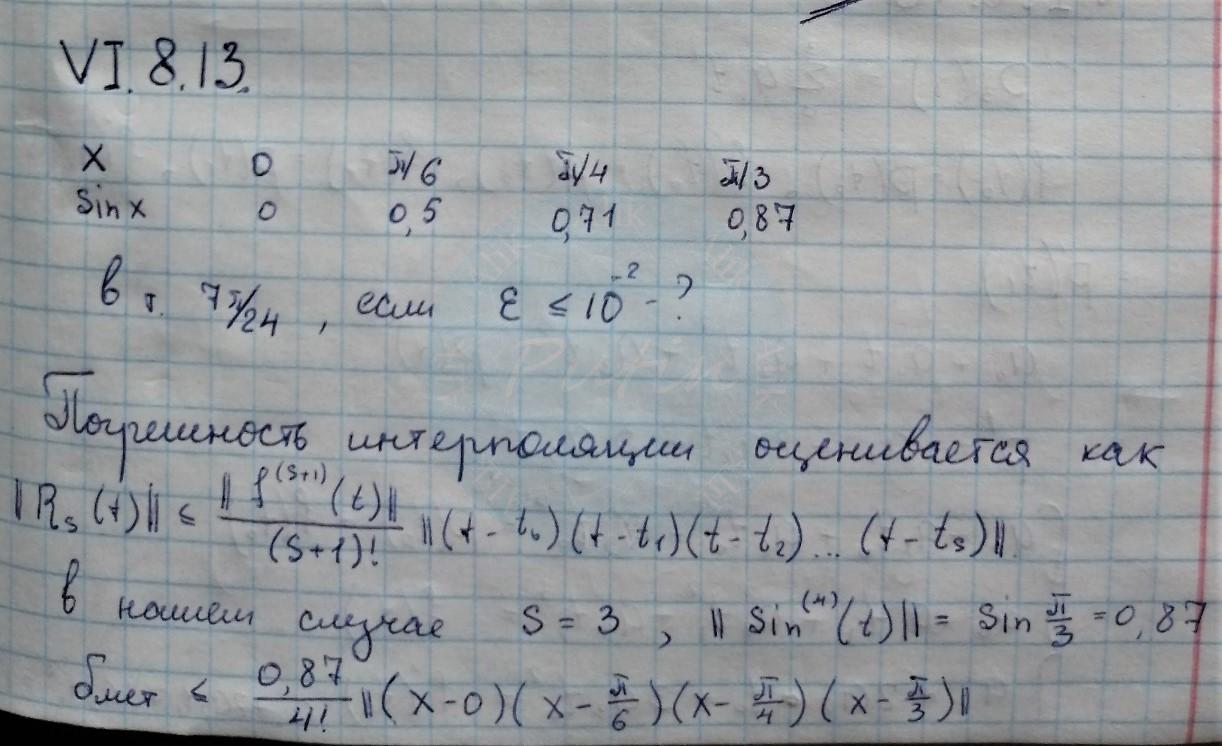 VI.8.13.
x 0 π/6 π/4 π/3
sin x 0 0,5 0,71 0,87
в т. 7π/24, если ε ≤ 10^-2 - ?
Погрешность интерполяции оценивается как
||R_s(t)|| ≤ ||f^(s+1)(t)|| / (s+1)! ||(t - t_0)(t - t_1)(t - t_2)...(t - t_s)||.
в нашем случае s = 3, ||sin^(4)(t)|| = sin π/3 = 0,87
δмет ≤ 0,87/4! ||(x-0)(x - π/6)(x - π/4)(x - π/3)||